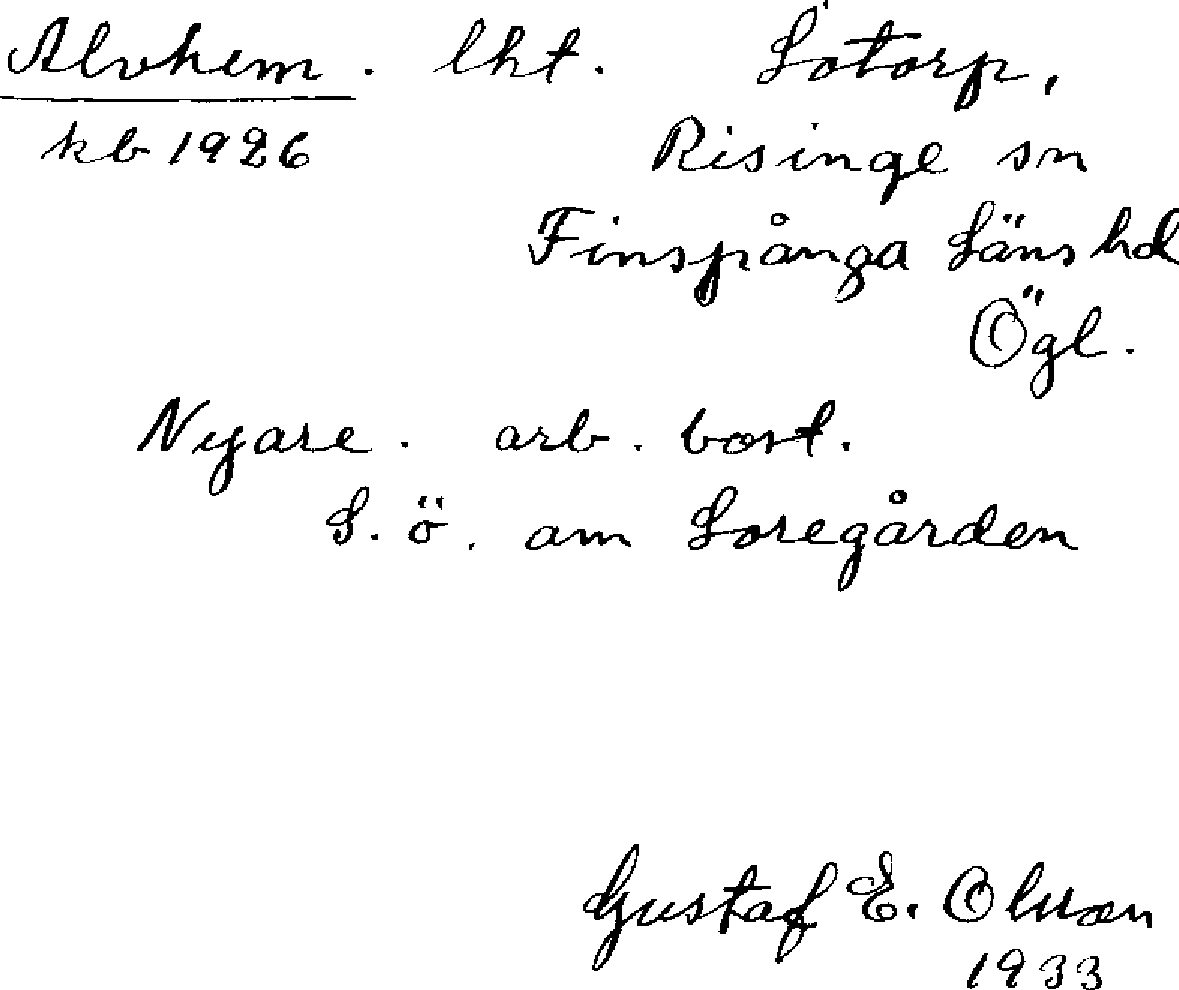 Alvhem. lht. Lotorp,
kb 1926 Risinge sn
Finspånga Läns hd
Ögl.
Nyare. arb. bost.
S. ö. om Soregården
Gustaf E. Olsson
1933